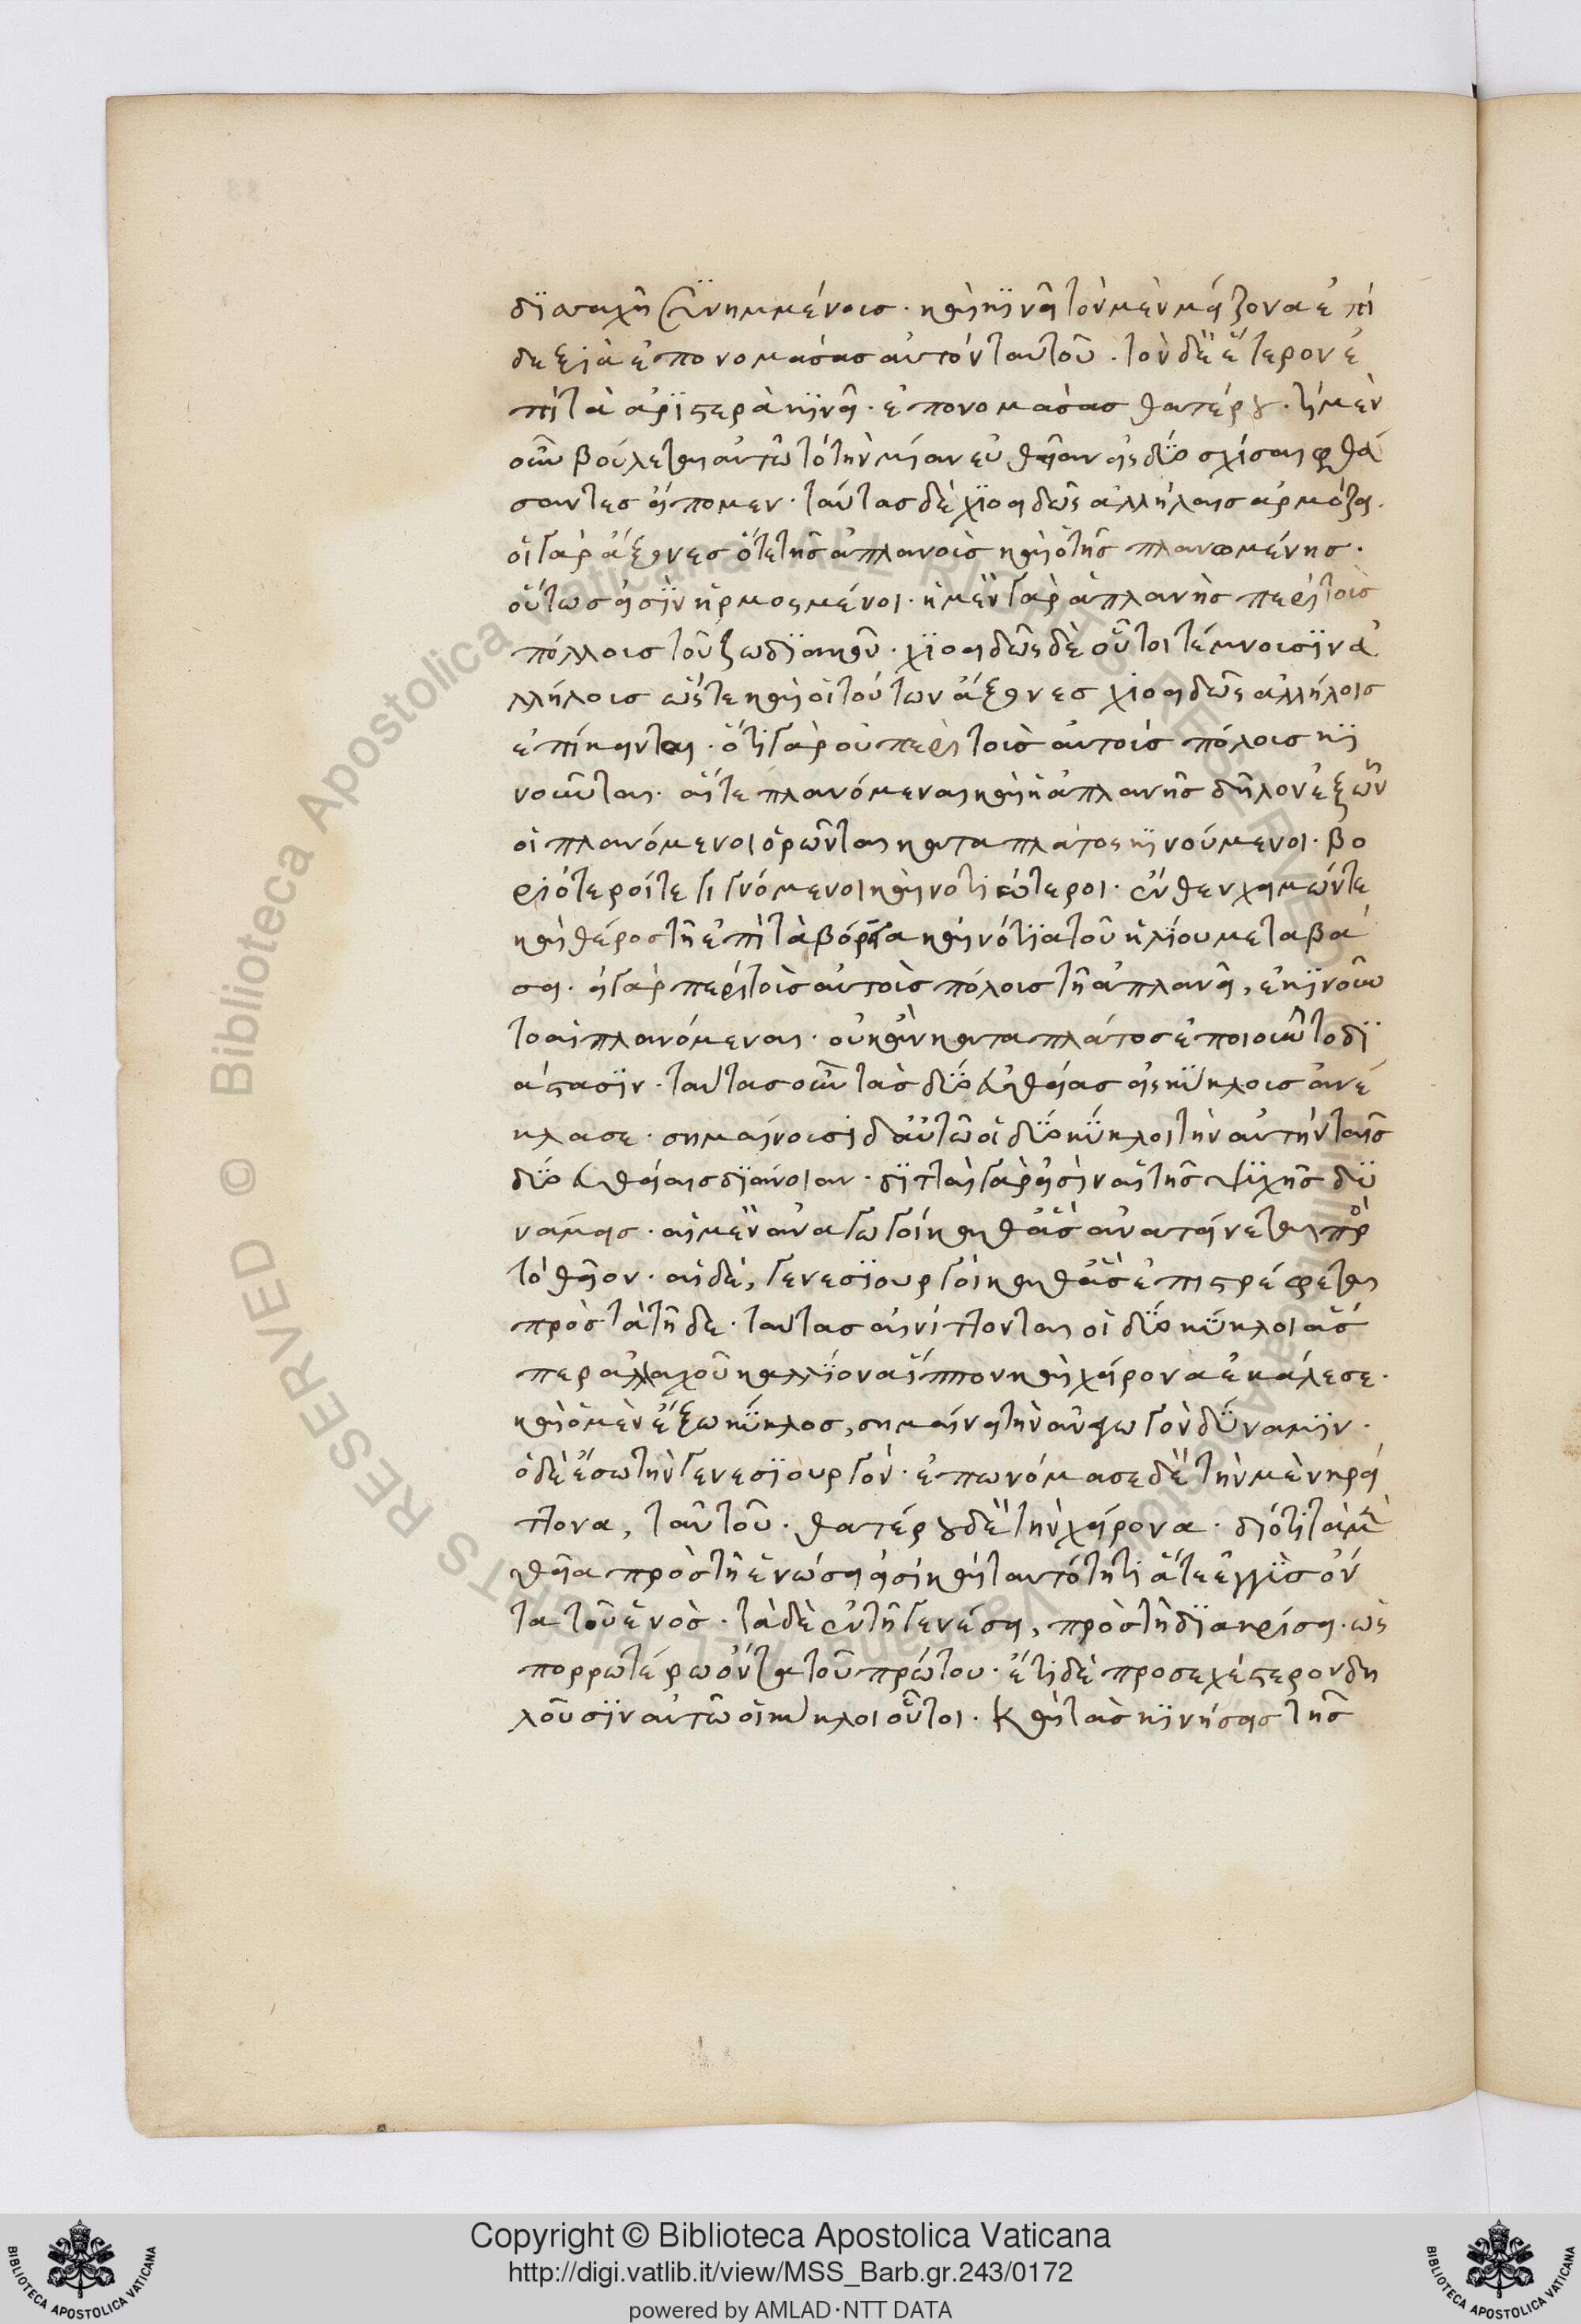 διανταχῆ συνημμένοις. καὶ κινεῖ τὸν μὲν μείζονα ἐπὶ
δεξιὰ ἐπονομάσας αὐτὸν ταυτοῦ. τὸν δὲ ἕτερον ἐ
πὶ τὰ ἀριστερὰ κινεῖ. ἐπονομάσας θατέρου. τί μὲν
οὖν βούλεται αὐτῶ τὸ τὴν μίαν εὐθεῖαν εἰς δύο σχίσαι φθά
σαντες εἴπομεν. ταύτας δὲ χιοειδῶς ἀλλήλαις ἁρμόζει.
οἱ γὰρ ἄξονες ὅτε τῆς ἀπλανοῖς καὶ ὁ τῆς πλανωμένης.
οὕτως εἰσὶν ἡρμοσμένοι. ἡ μὲν γὰρ ἀπλανὴς περὶ τοῖς
πόλλοις τοῦ ζωδιακοῦ. χιοειδῶς δὲ οὗτοι τέμνοισιν ἀ
λλήλοις ὥστε καὶ οἱ τούτων ἄξονες χιοειδῶς ἀλλήλοις
ἐπίκεινται. ὅτι γὰρ οὐ περὶ τοῖς αὐτοῖς πόλοις κι
νοῦνται. αἵτε πλανόμεναι καὶ ἡ ἀπλανὴς δῆλον ἐξ ὧν
οἱ πλανόμενοι ὁρῶνται κατα πλάτος κινούμενοι. βο
ριότεροίτε γιγνόμενοι καὶ νοτιώτεροι. ἔνθεν χειμώντε
καὶ θέρος τῆ ἐπὶ τὰ βόρεια καὶ νότια τοῦ ἡλίου μεταβά
σει. εἰ γὰρ περὶ τοῖς αὐτοῖς πόλοις τῆ ἀπλανεῖ, ἐκινοῦν
το αἱ πλανόμεναι. οὐκ ἂν κατα πλάτος ἐποιοῦντο δι
άστασιν. ταύτας οὖν τὰς δύο εὐθείας εἰς κύκλοις ἀνέ
κλασε. σημαίνοισι δ' αὐτῶ οἱ δύο κύκλοι τὴν αὐτὴν ταῖς
δύο εὐθείαις διάνοιαν. διτταὶ γάρ εἰσιν αἱ τῆς ψυχῆς δυ
νάμεις. αἱ μὲν ἀναγωγοὶ καθ' ἃς ἀνατείνεται πρὸς
τὸ θεῖον. αἱ δὲ, γενεσιουργοὶ καθ' ἃς ἐπιστρέφεται
πρὸς τὰ τῆδε. ταύτας αἰνίττονται οἱ δύο κύκλοι ἅς
περ ἀλλαχοῦ καλλίονα ἵππον καὶ χείρονα ἐκάλεσε.
καὶ ὁ μὲν ἔξω κύκλος, σημαίνει τὴν ἀναγωγὸν δύναμιν.
ὁ δὲ ἔσω τὴν γενεσιουργόν. ἐπωνόμασε δὲ τὴν μὲν κρεί
ττονα, ταὐτοῦ. θατέρου δὲ τὴν χείρονα. διότι τὰ μὲν
θεῖα πρὸς τῆ ἑνώσει εἰσὶ καὶ ταυτότητι ἅτε ἐγγὺς ὄν
τα τοῦ ἑνός. τὰ δὲ ἐν τῆ γενέσει, πρὸς τῆ διακρίσει. ὡς
πορρωτέρω ὄντα τοῦ πρώτου. ἔτι δὲ προσεχέστερον δη
λοῦσιν αὐτῶ οἱ κύκλοι οὗτοι. καὶ τὰς κινήσεις τῆς
Copyright © Biblioteca Apostolica Vaticana
http://digi.vatlib.it/view/MSS_Barb.gr.243/0172
powered by AMLAD·NTT DATA